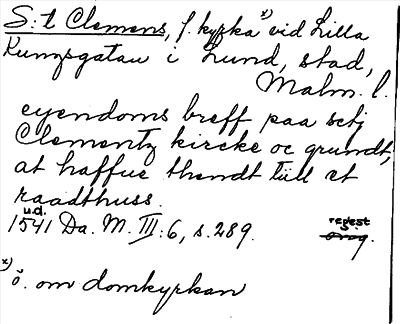 S:t Clemens, f. kyrka x) vid Lilla
Kungsgatan i Lund, stad,
Malm. l.
eyendoms breff paa sctj
Clementz kircke oc grundt,
at haffue thendt tiill et
raadthuss.
u.d.
1541 Da. M. III:6, s. 289.
regest
orig.
x) ö. om domkyrkan